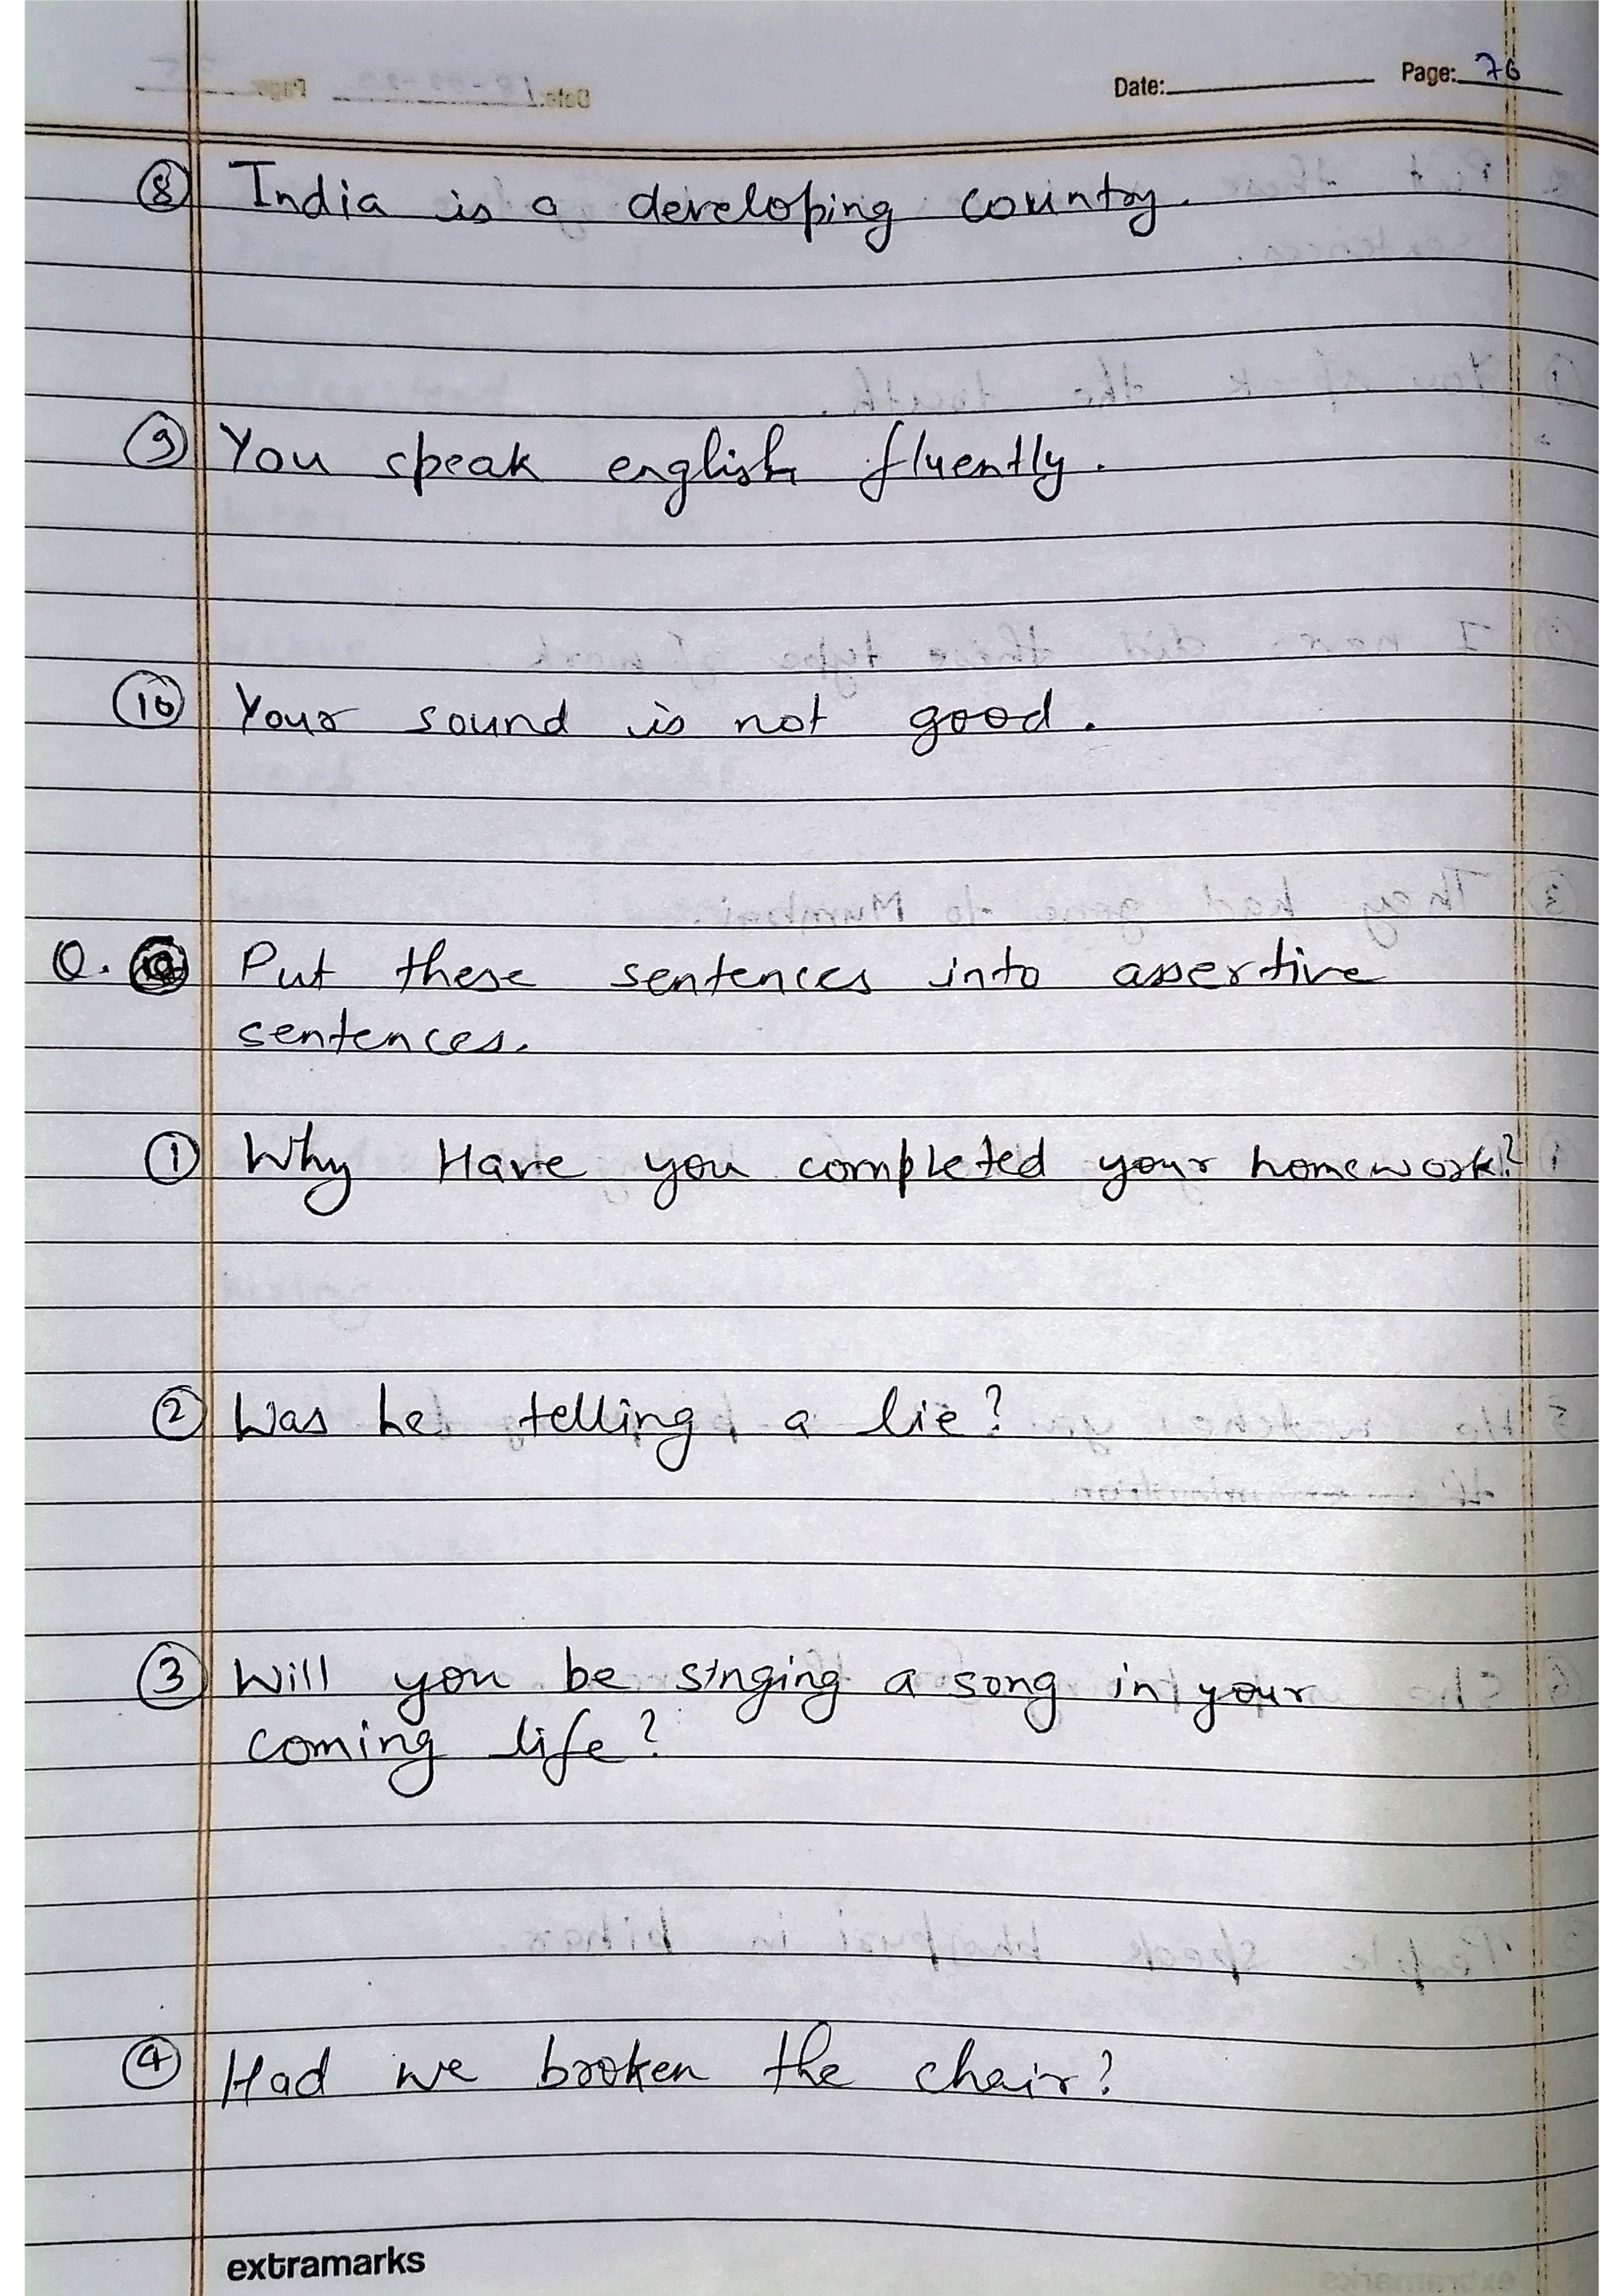 Date: Page: 76
⑧ India is a developing country.
⑨ You speak english fluently.
⑩ Your sound is not good.
Q. Put these sentences into assertive
sentences.
① Why Have you completed your homework?
② Was he telling a lie?
③ Will you be singing a song in your
coming life?
④ Had we broken the chair?
extramarks